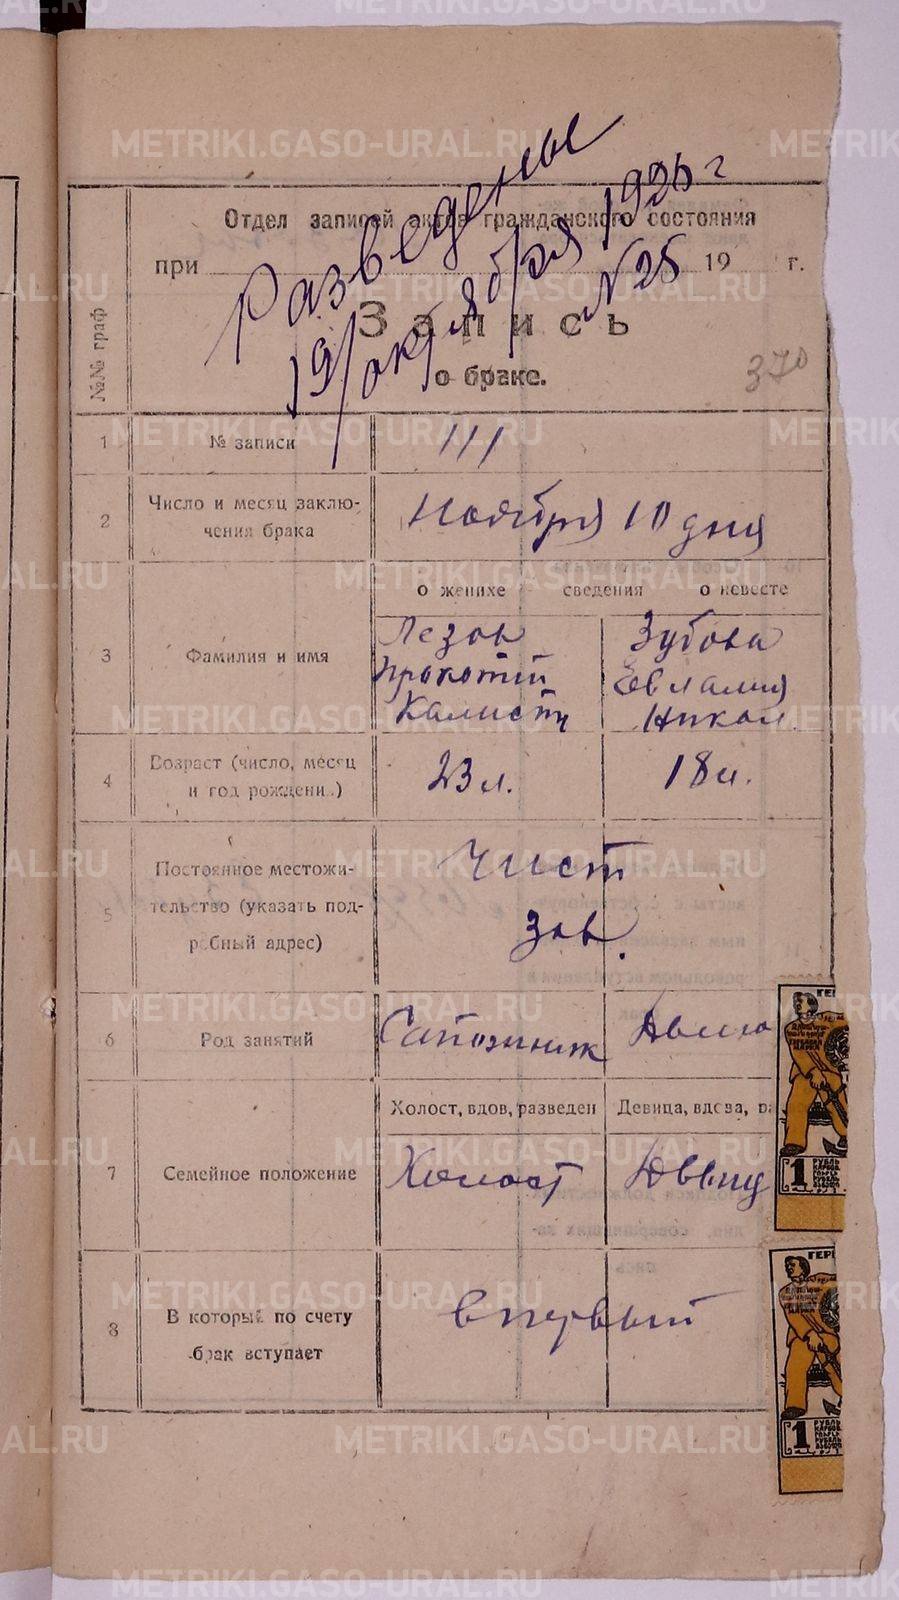 METRIKI.GASO-URAL.RU
Разведены
19/октября 1926 г
N 25
Отдел записей актов гражданского состояния
при 19 г.
Запись
о браке.
370
№№ граф
1 № записи 111
2 Число и месяц заклю-
чения брака Ноября 10 дня
о женихе сведения о невесте
3 Фамилия и имя
Лезов Зубова
Прокопий Евлампия
Калистр Никол
4 Возраст (число, месяц
и год рождени.) 23 л. 18 л.
5 Постоянное местожи-
тельство (указать под-
робный адрес)
Чист
зав.
6 Род занятий Сапожник Домо
Холост, вдов, разведен Девица, вдова,
7 Семейное положение Холост Девиц
8 В который по счету
брак вступает впервый
ГЕР
1
РУБЛЬ
ГЕР
1
РУБЛЬ